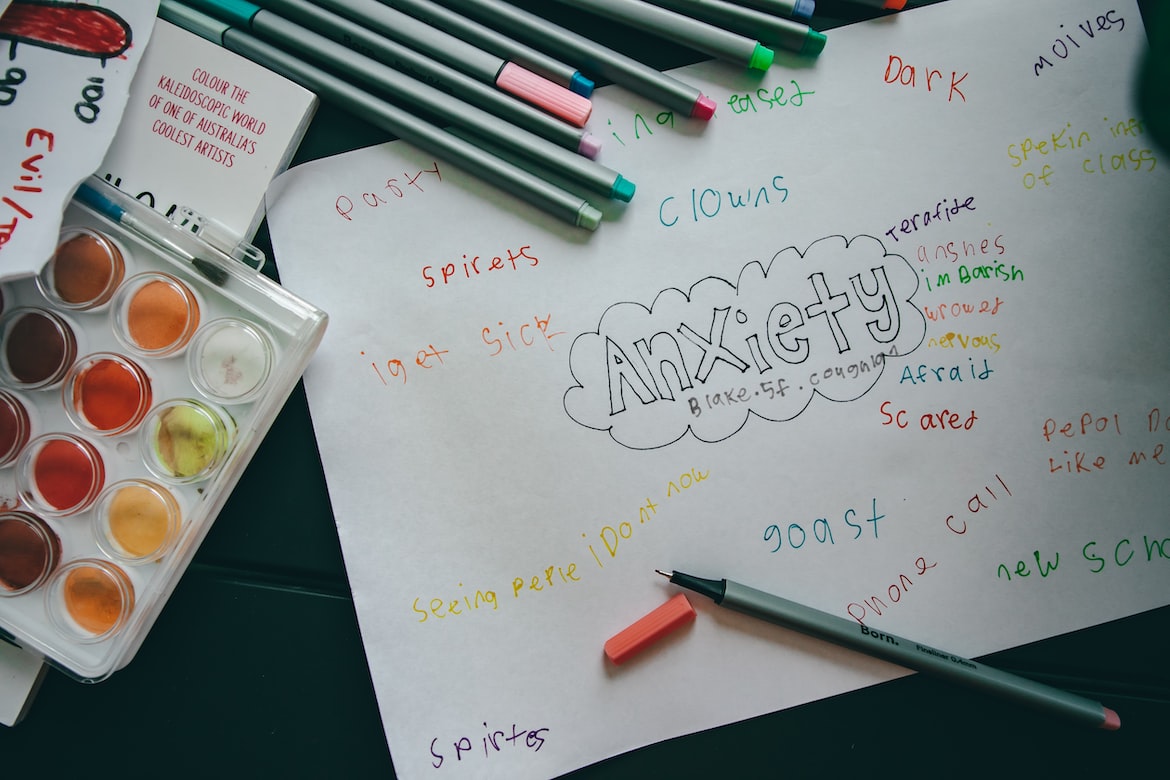 100
90
Evil/
COLOUR THE
KALEIDOSCOPIC WORLD
OF ONE OF AUSTRALIA'S
COOLEST ARTISTS
Born.
moives
Dark
ing eased
party
spekin
of class
clowns
spirets
Terafide
anshes
imBarish
iget sick
Anxiety
Blake.5f.
nervous
Afraid
Scared
pepol
Like me
seeing peple iDont now
goast
phone call
new Scho
Born.
Fineliner 0.4mm
spirtes